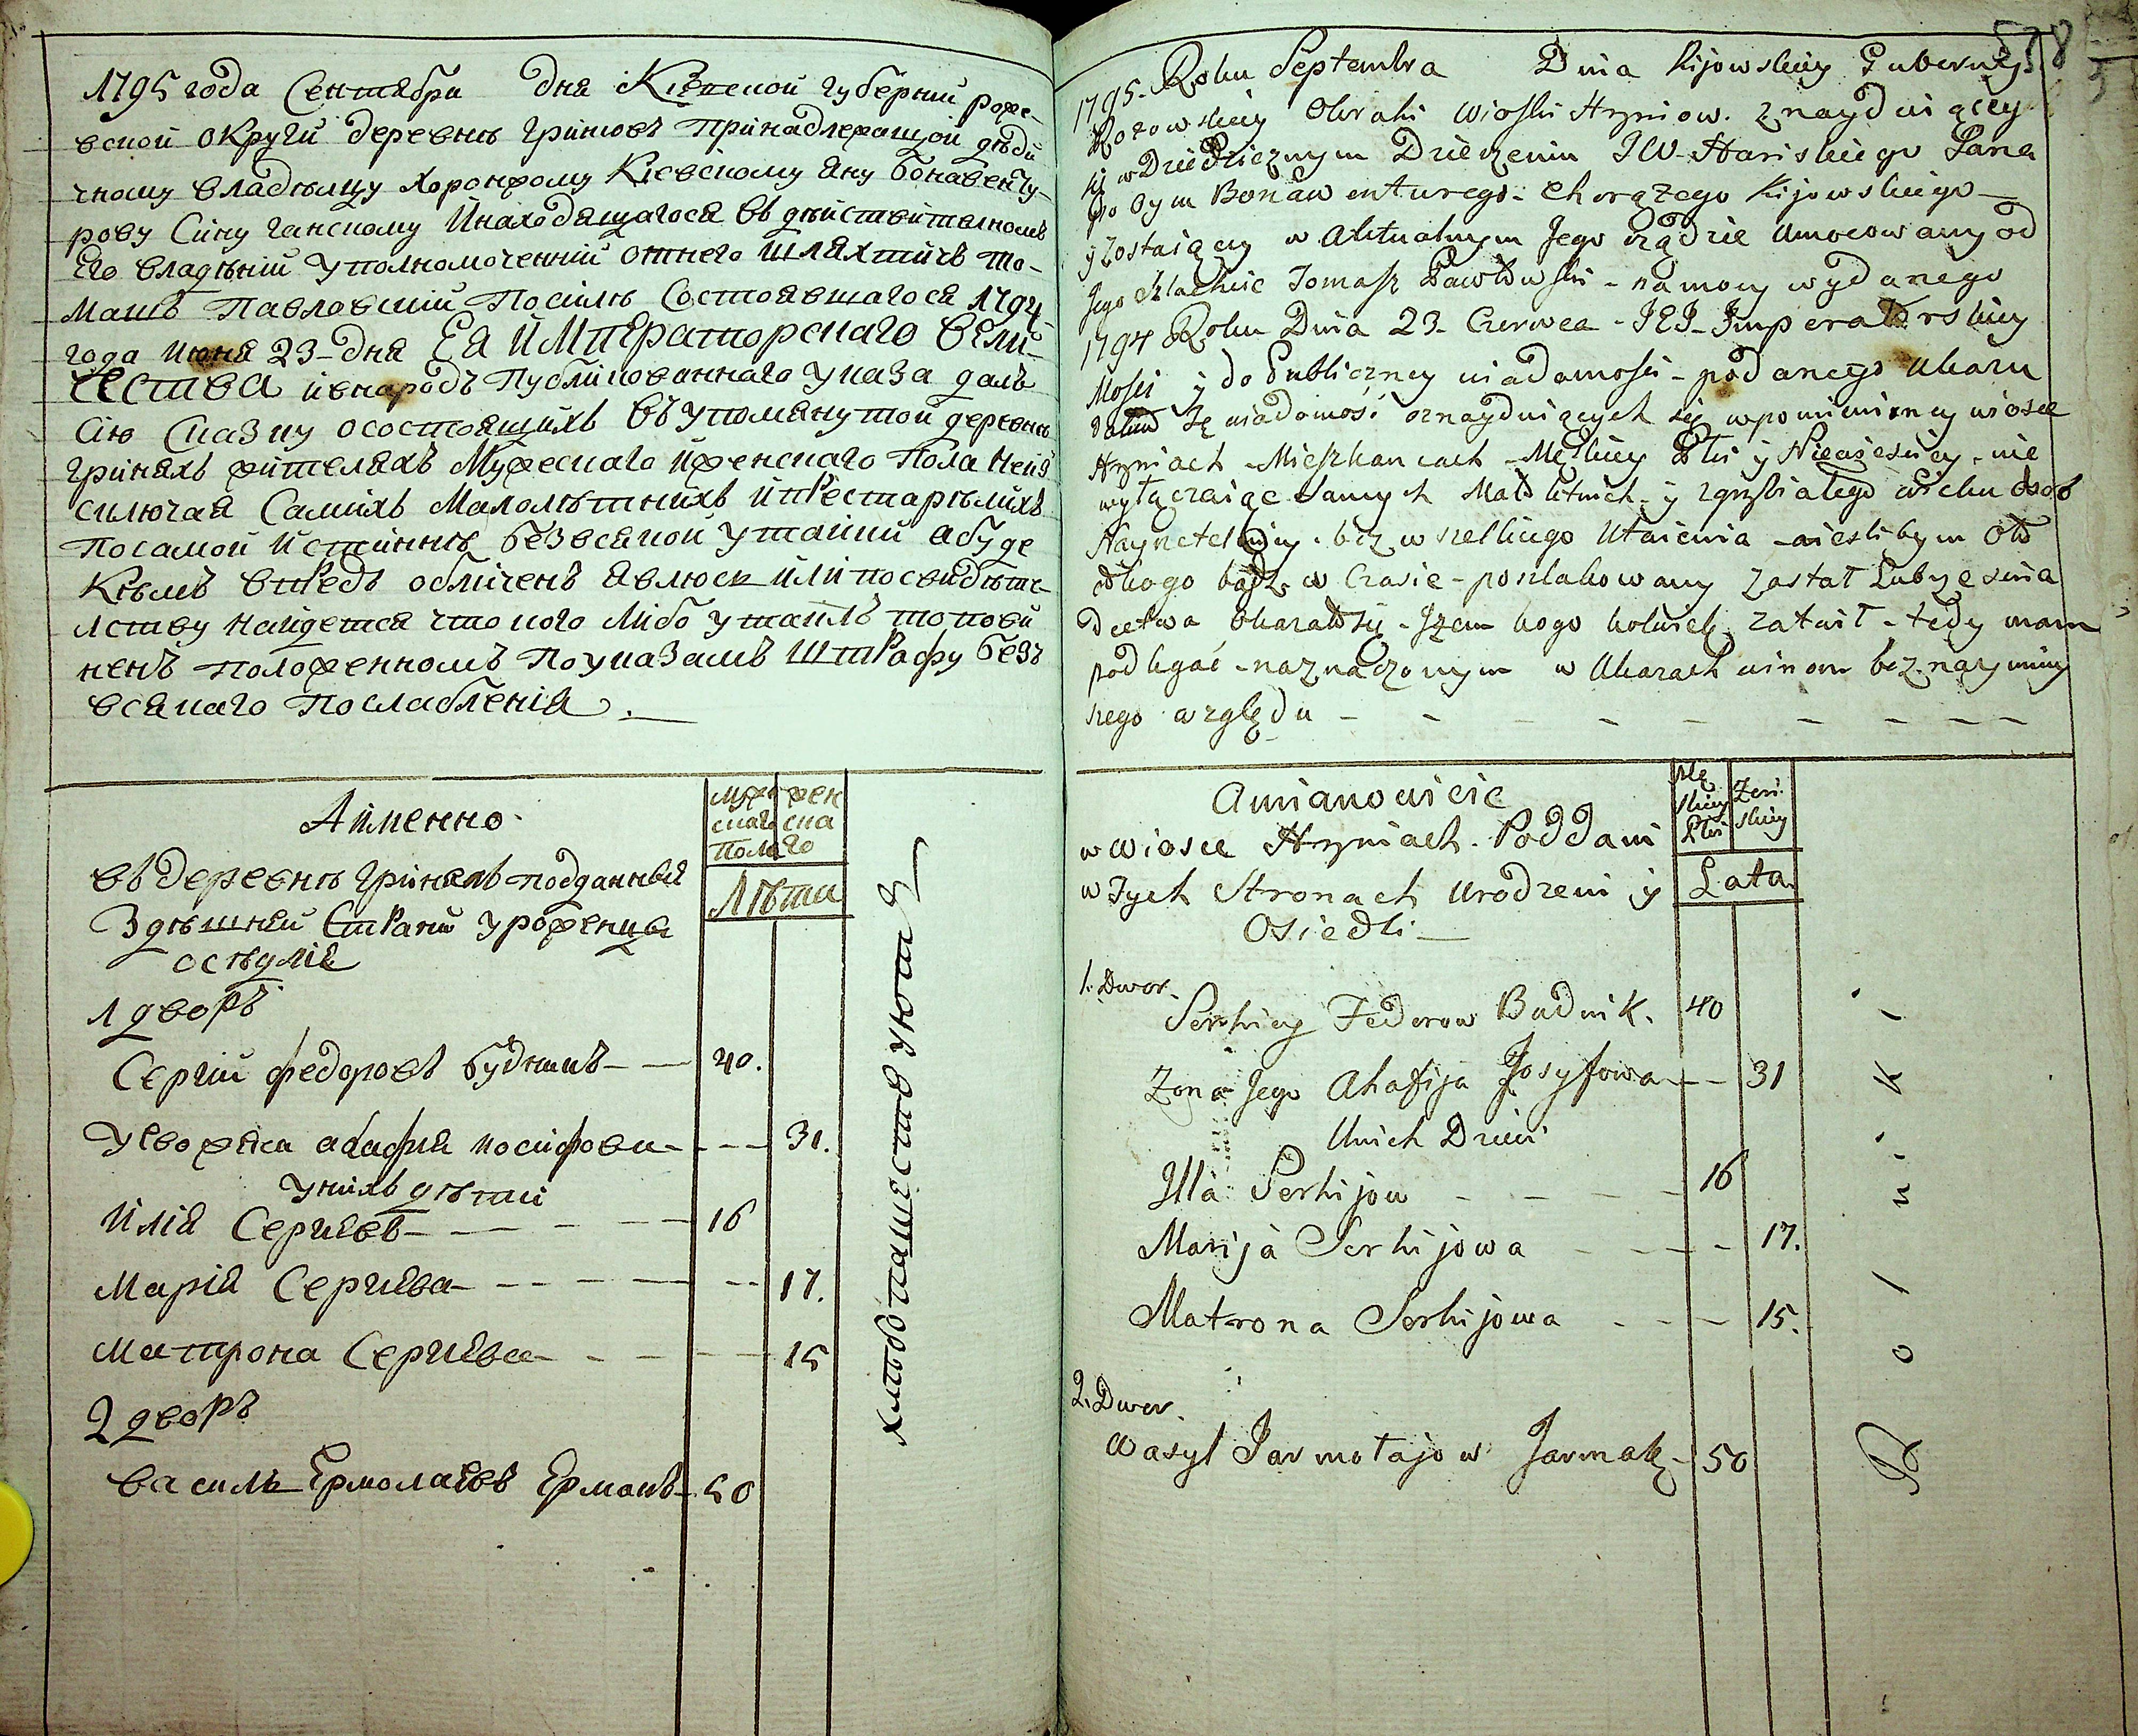 1795 года Сентября дня Кіевской губерніи роже-
вской округи деревнѣ гриновъ принадлежащой дѣди
чному владѣльцу хоронжому Кіевскому Яну бонавенту-
рову Сину ганскому Инаходящагося въ дѣйствительномъ
Его владѣніи уполномоченній отнего шляхтичъ То-
машъ Павловскій Посилѣ Состоявшагося 1794
года июня 23 дня Ея Императорскаго Вели-
чества ивнародъ публикованнаго указа далъ
Сію Сказку осостоящихъ въ упомянутой деревнѣ
гриняхъ жителяхъ Мужескаго иженскаго пола Неиз
сключая Самихъ Малолѣтнихъ ипрестарѣлихъ
посамой истинннѣ безвсякой утайки абуде
Кѣмъ впредь обличенъ явлюсь или посвидѣте-
лству найдется что кого либо утаилъ топови
ненъ положенномъ поуказамъ штрафу безъ
всякаго послабленія.
Аименно
мужескаго пола
женскаго
Лѣта
въ деревнѣ гриняхъ подданныя
здѣшней Страни уроженци
осѣдлія
1 дворъ
Сергій федоровъ будникъ 40.
Уево жена агафия иосифова 31.
Унихъ дѣти
Илія Сергиевъ 16
Марія Сергиева 17.
Матрона Сергиева 15
2 дворъ
василь Ермолаевъ Ермакъ 50
хлѣбопашествуют
578
1795. Roku Septembra Dnia Kijowskiey Gubernij
Rozowskiey Okrahi wioski Hryniow. znayduiącey
się w Dziedzicznym Dzierzeniu JW. Hanskiego Jana
po Oycu Bonawenturego. Chorążego Kijowskiego
y zostaiący w Aktualnym Jego rządzie Umocowany od
Jego Szlachcic Tomasz Pawłowski - na mocy wydanego
1794 Roku Dnia 23. Czerwca - JEJ Imperatorskiey
Mości y do Publiczney wiadomości - podanego Ukazu
Dałem Tę wiadomość oznayduiących się wpomienioney wiosce
Hryniach - Mieszkancach - Męskiey Płci y Niewieściey - nie
wyłączaiąc samych Małoletnich y zgrzybiałego wieku Osob
Nayrzetelniey - bez wszelkiego Utaienia - a iesliбym Od
kogo bądz w Czasie - poszlakowany został lub ze swia
dectwa Okazałosię - Iżem kogo kolwiek zataił - tedy mam
podlegać - naznaczonym w Ukazach winom bez naymniey
szego względu
Amianowicie
w wiosce Hryniach. Poddani
w Tych Stronach Urodzeni y
Osiedli
Męskiey Płci
Zenskiey
Lata
1. Dwor.
Serhiey Federow Budnik. 40
Zona Jego Ahafija Josyfowa 31
Unich Dzieci
Illa Serhijow 16
Marija Serhijowa 17.
Matrona Serhijowa 15.
2. Dwor.
Wasyl Jarmołajow Jarmak 50
Rolniki